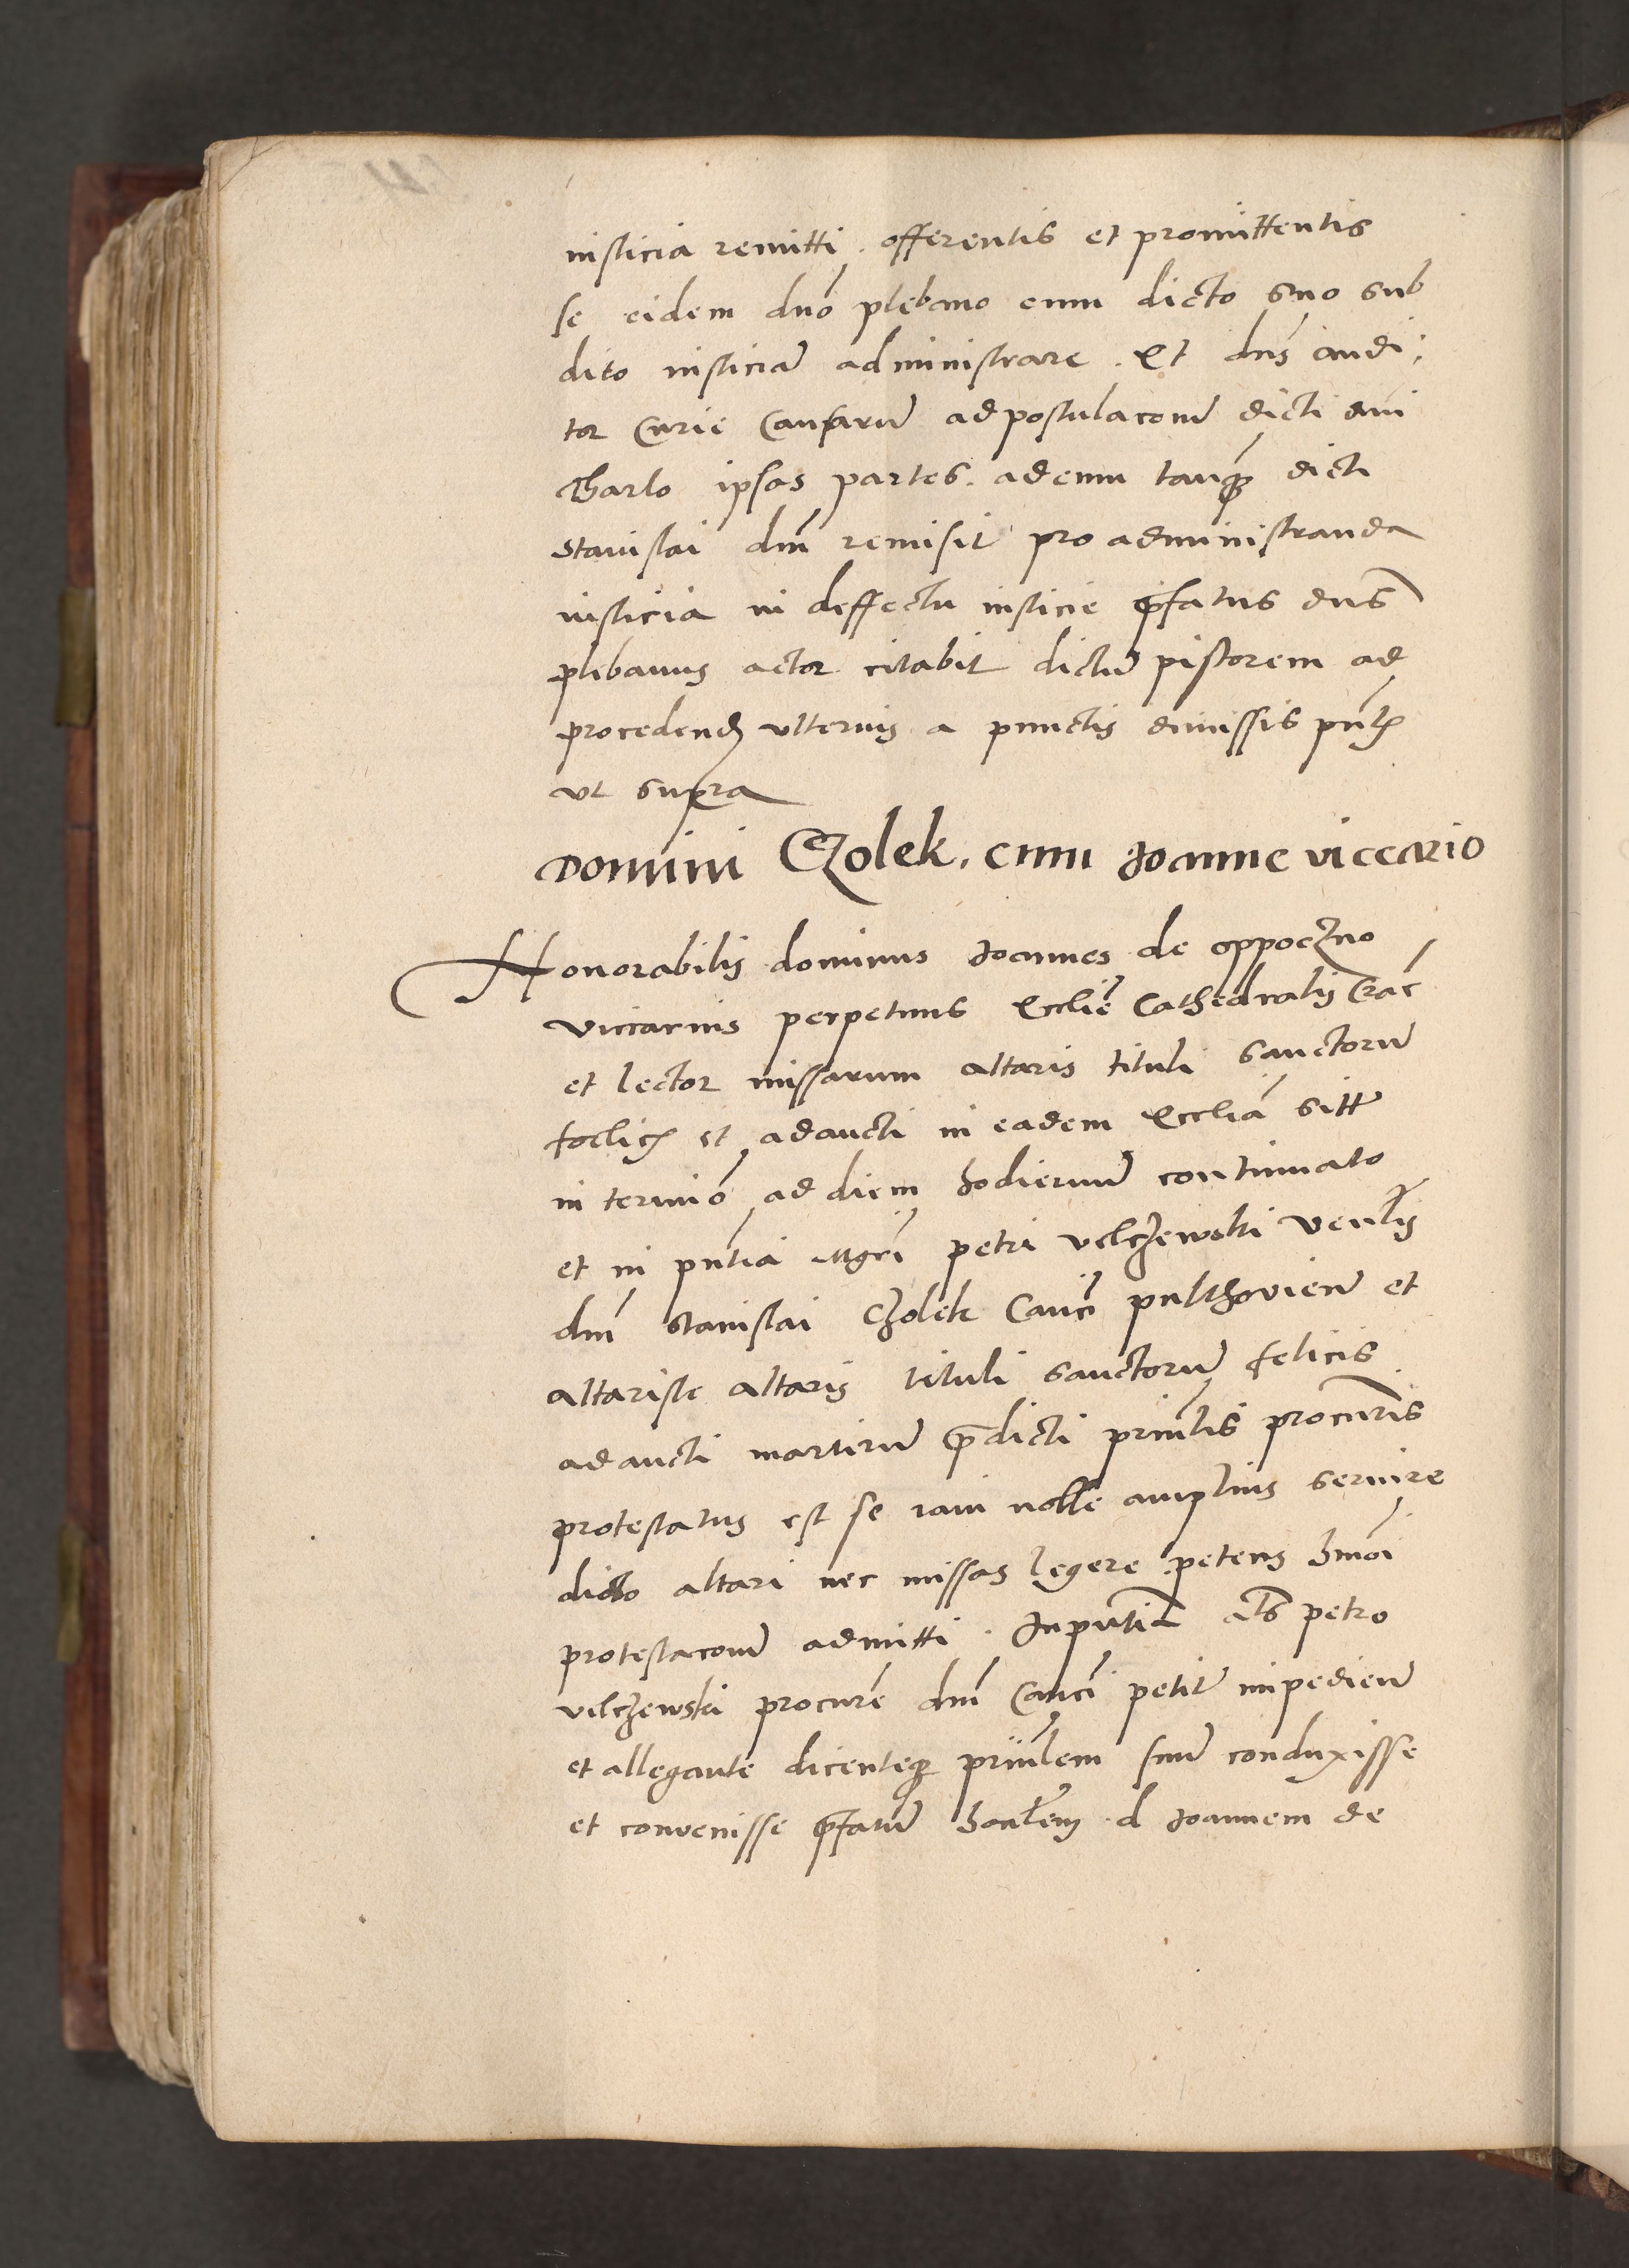 iusticia remitti. offerentis et promittentis
se eidem dnō plebano cum dicto suo sub
dito iusticiā administrare. Et dns̄ audi:
tor Curie Causarū ad postulaconē dicti dni
Tharlo ipsas partes. ad eum tanq̄ dicti
Stanislai dn̄i remisit pro administranda
iusticia in deffectu iusticie p̄fatus dns̄
plebanus actor citabit dictū pistorem ad
procedend ulterius a punctis dimissis pn̄t
ut supra
Domini Czolek. cum Joanne viccario
Honorabilis dominus Joannes de oppoczno
viccarius perpetuus Ecclīe Cathedralis Crac̄
et lector missarum altaris tituli sanctorū
foelicis et adaucti in eadem Ecclīa sitt̄
in terminō ad diem hodiernū continuato
et in pn̄tia Mgrī petri velczewski venlis
dn̄i Stanislai Czolek Canci pulthovien̄ et
altariste altaris tituli sanctorū felicis
adaucti martirū p̄dicti prin̄lis procurīs
protestatus est se iam nolle amplius servire
dicto altari nec missas legere. petens hmōi
protestaconē admitti. In pn̄tia als petro
velczewski procurē dn̄i Canci petit̄ impedien̄
et allegante dicenteq̄ prin̄lem suū conduxisse
et convenisse p̄fatū honlem d Joannem de